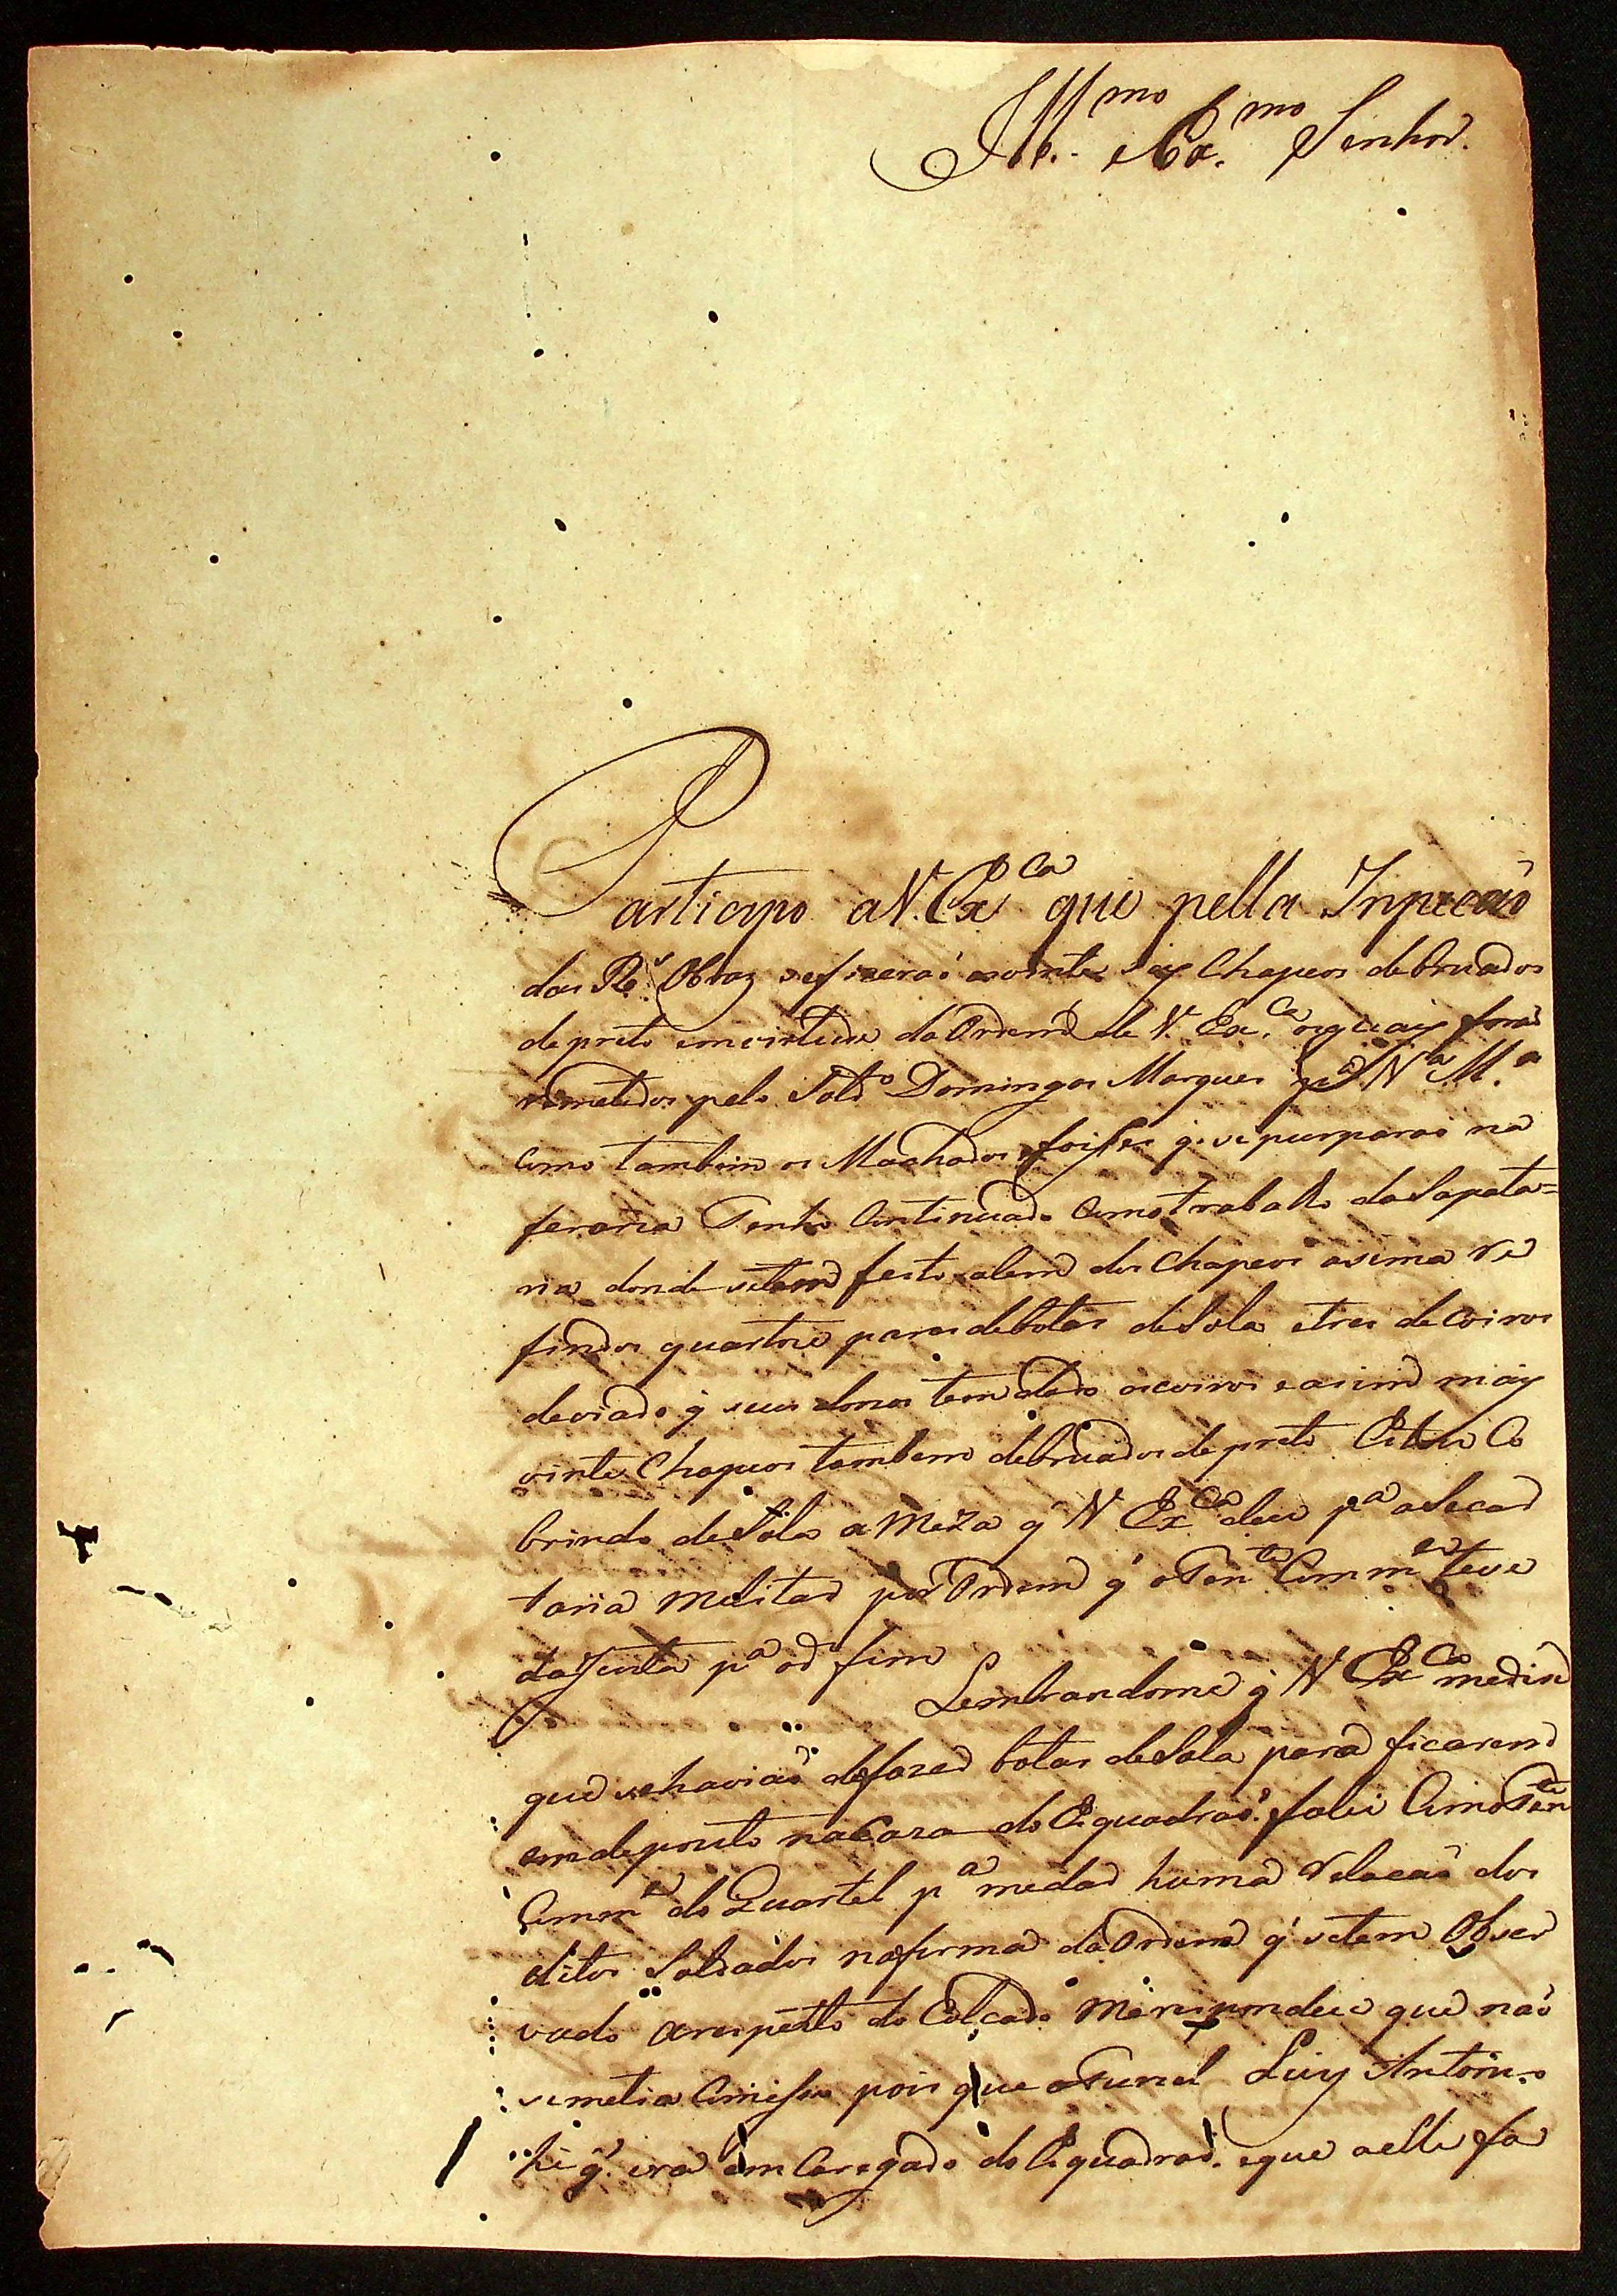 Ill.mo e Ex.mo Senhor.
Participo a V. Ex.ca que pella Inpecaõ
das R.s Obraz sefizeraõ as vinte seis Chapeos debruados
de preto em virtude da Ordem de V. Ex.ca os quais foraõ
remetidos pelo Sold.o Domingos Marques p.a V.a M.a
Como tambem os Machados e foises q. se purparaõ na
feraria Tenho Continuado Como trabalho da Sapata=
ria donde setem feito alem dos Chapeos asima re
firidos quartoze pares de botas de Sola e tres de Coiros
de viado q seus donos tem dado os coiros e asim mais
vinte Chapeos tambem debruados de preto Estou Co
brindo de Sola a Meza q V Ex.ca deu p.a a Secre
taria Melitar por Ordem q o Ten.te Comm.e teve
da Junta p.a o d.o fim
Lembrandome q V Ex.ca medise
que se haviaõ de fazer botas de Sola para ficarem
em deposito na Caza do Esquadraõ. falei Com o Ten.te
Comm.e do Quartel p.a me dar huma relacaõ dos
ditos Soldados na forma da Ordem q' setem Obser
vado a respeito do Calçado Merespondeu que naõ
semetia Comisso pois que o Furriel Luiz Antoni.o
hé q. era em Caregado do Esquadraõ. e que a elle fa